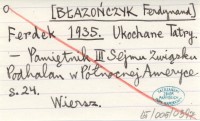 [BŁAZOŃCZYK Ferdynand]
Ferdek 1935. Ukochane Tatry.
— Pamiętnik III Sejmu Związku
Podhalan w Północnej Ameryce
s. 24.
Wiersz.